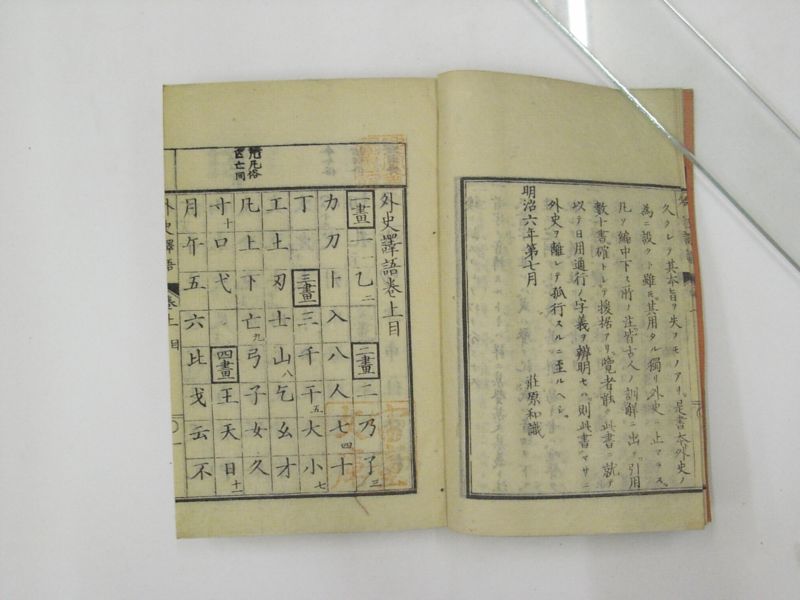 久クシテ其本旨ヲ失フモノアリ是書本外史ノ
為ニ設クト雖モ其用タル獨リ外史ニ止マラス
凡ソ編中下ス所ノ注皆古人ノ訓解ニ出ツ引用
數十書確トシテ援據アリ覽者能ク此書ニ就テ
以テ日用通行ノ字義ヲ辨明セハ則此書マサニ
外史ヲ離レテ孤行スルニ至ルヘシ
明治六年第七月
莊原和識
外史譯語卷上目
一畫 一 一 乙 二 二畫 二 乃 了 三
力 刀 卜 入 八 人 七 四 十
丁 三畫 三 千 干 五 大 小 七
工 土 刃 士 山 八 乞 幺 才
凡 上 下 亡 九 弓 子 女 久
寸 十 口 弋 四畫 王 天 日 十一
月 午 五 六 比 戈 云 不
外史譯語 卷上 目